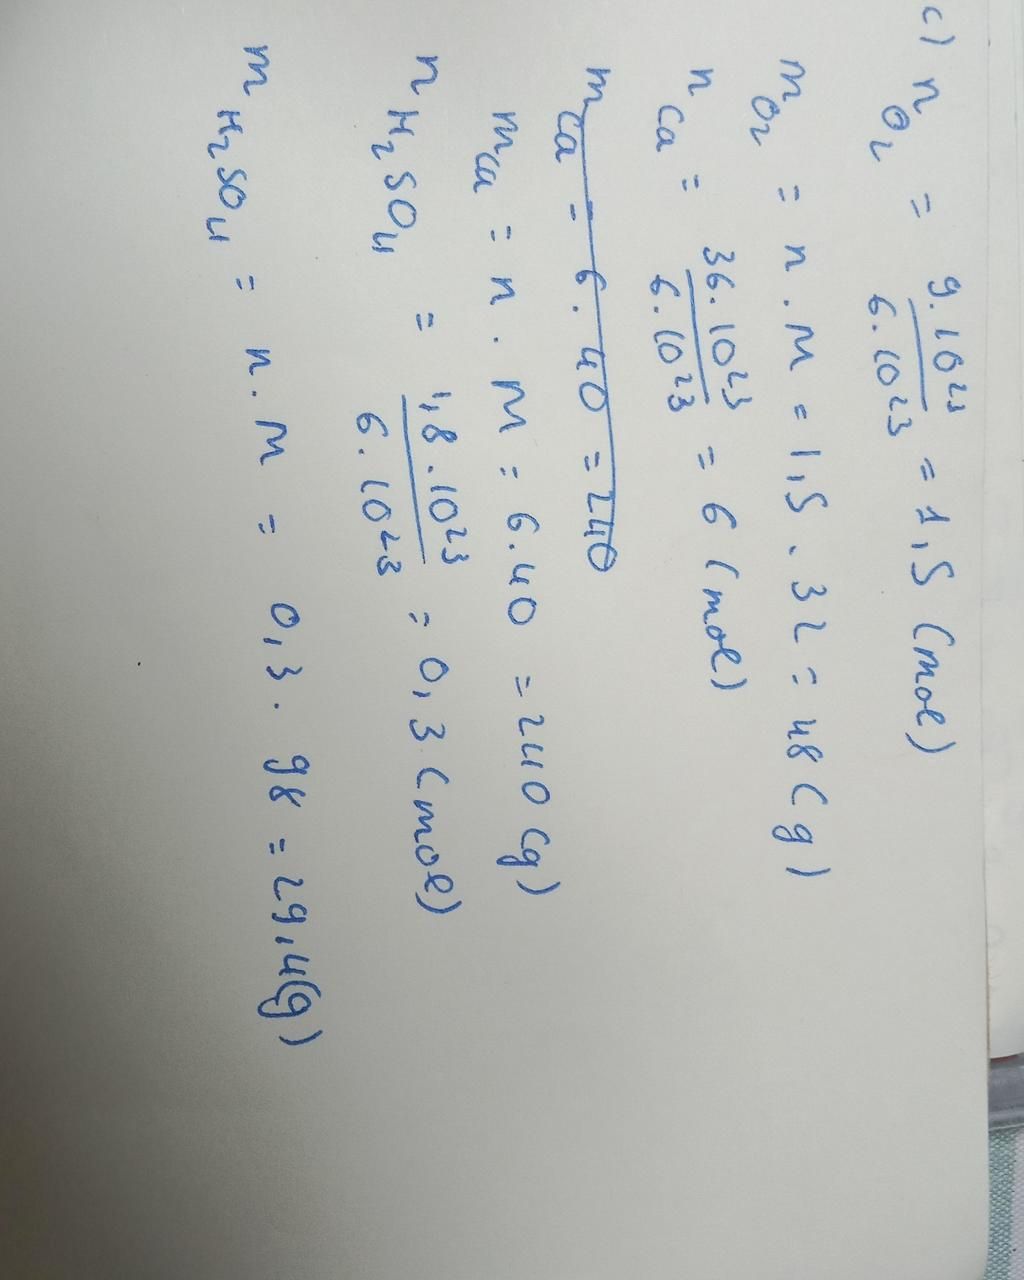 c) n O2 = 9.10^23 / 6.10^23 = 1,5 (mol)
m O2 = n.M = 1,5.32 = 48 (g)
n Ca = 36.10^23 / 6.10^23 = 6 (mol)
m Ca = 6.40 = 240
m Ca = n.M = 6.40 = 240 (g)
n H2SO4 = 1,8.10^23 / 6.10^23 = 0,3 (mol)
m H2SO4 = n.M = 0,3.98 = 29,4 (g)